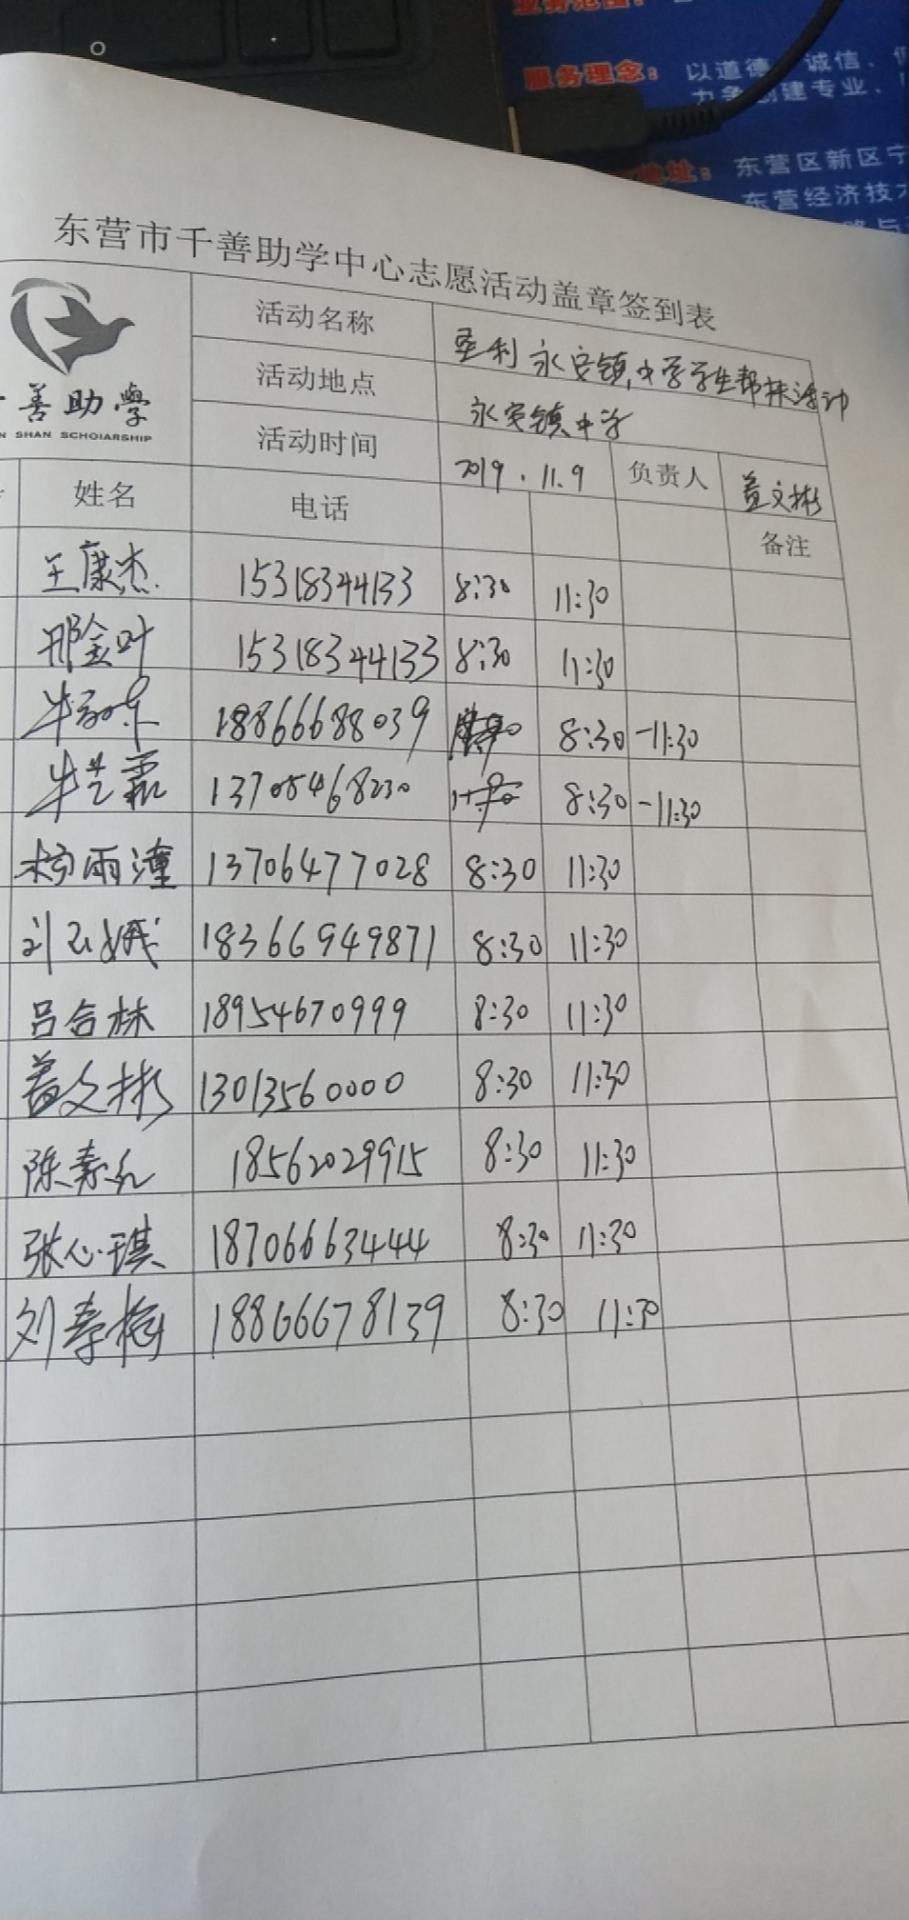 服务理念： 以道德、诚信、
力争创建专业、
地址： 东营区新区宁
东营经济技术
路与
东营市千善助学中心志愿活动盖章签到表
善助學
N SHAN SCHOIARSHIP
活动名称 垦利永安镇中学学生帮扶活动
活动地点 永安镇中学
活动时间 2019.11.9 负责人 盖文彬
姓名 电话 备注
王康杰 15318344133 8:30 11:30
邢金叶 15318344133 8:30 11:30
牛 18866688039 8:30 -11:30
牛芝霖 13705468230 8:30 -11:30
杨雨潼 13706477028 8:30 11:30
刘玉娥 18366949871 8:30 11:30
吕合林 18954670999 8:30 11:30
盖文彬 13013560000 8:30 11:30
陈素红 18562029915 8:30 11:30
张心琪 18706663444 8:30 11:30
刘春梅 18866678139 8:30 11:30